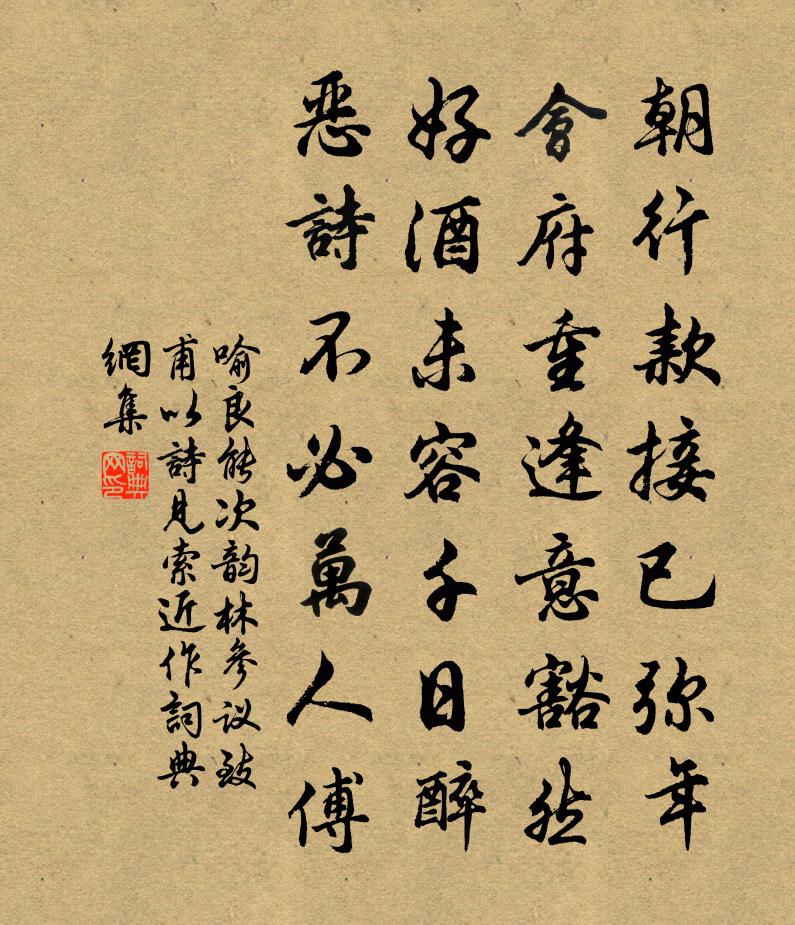 朝行款接已弥年
會府重逢意豁然
好酒未容千日醉
惡詩不必萬人傅
喻良能次韵林參议致
甫以詩見索近作詞典
網集
詞典
网印